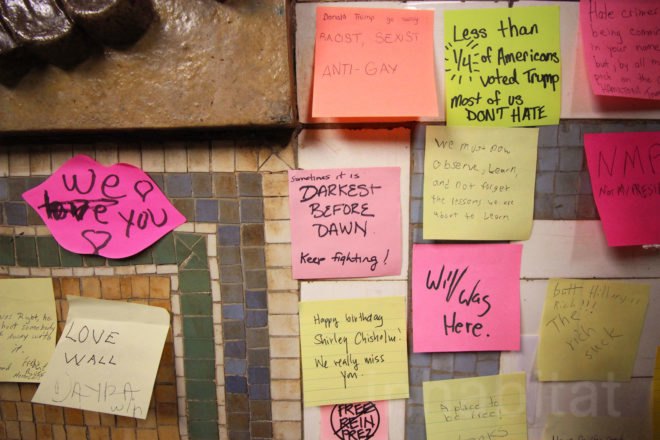 Donald Trump go away
RACIST, SEXIST
ANTI-GAY
Less than
1/4 of Americans
voted Trump
most of us
DON'T HATE
Hate crimes
being commi
in your name
but, by all m
pick on the
HAMILTON
We must now
observe, Learn,
and not forget
the lessons we are
about to learn
NMP
Not My PRESID
We
love YOU
Sometimes it is
DARKEST
BEFORE
DAWN.
Keep fighting!
Will Was
Here.
Happy birthday
Shirley Chisholm!
We really miss
you.
both Hillary
Rich!!!
The
rich
suck
LOVE
WALL
DAYRA
was Right, he
shoot somebody
away with
it.
FREE
BEIN
PREZ
A place to
be free!
inhabitat